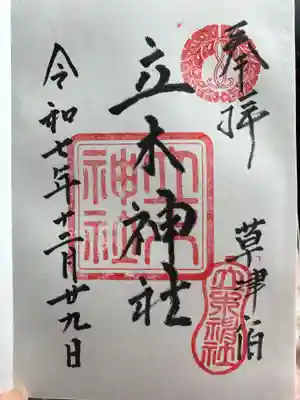 奉拝
草津宿
立木神社
令和七年十二月廿九日
立木神社
立木神社